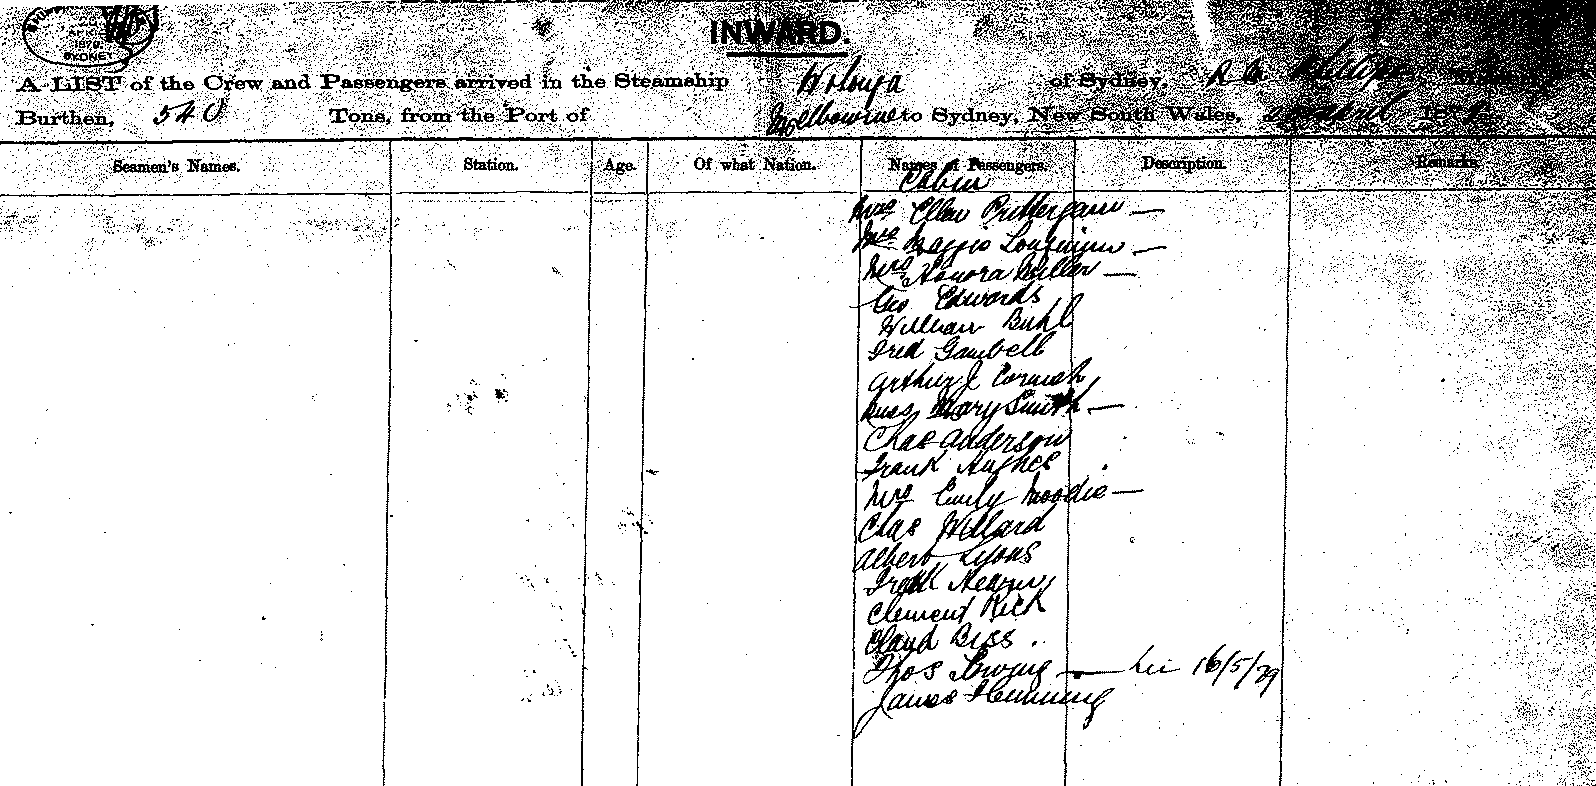 SYDNEY
INWARD.
A LIST of the Crew and Passengers arrived in the Steamship Wotonga of Sydney,
Burthen, 540 Tons, from the Port of Melbourne to Sydney, New South Wales, April 187
Seamen's Names. Station. Age. Of what Nation. Names of Passengers. Description. Remarks.
Cabin
Mrs Ellen —
Mrs Maggie —
Mrs Honora Miller —
Geo Edwards
William Buhl
Fred Gambell
Arthur J Cornish
Miss Mary Smith —
Chas Anderson
Frank Hughes
Mrs Emily Moodie —
Chas Willard
Albert Lyons
Fredk
Clement Rick
Claud Biss
Thos — 16/5/79
James Hemming